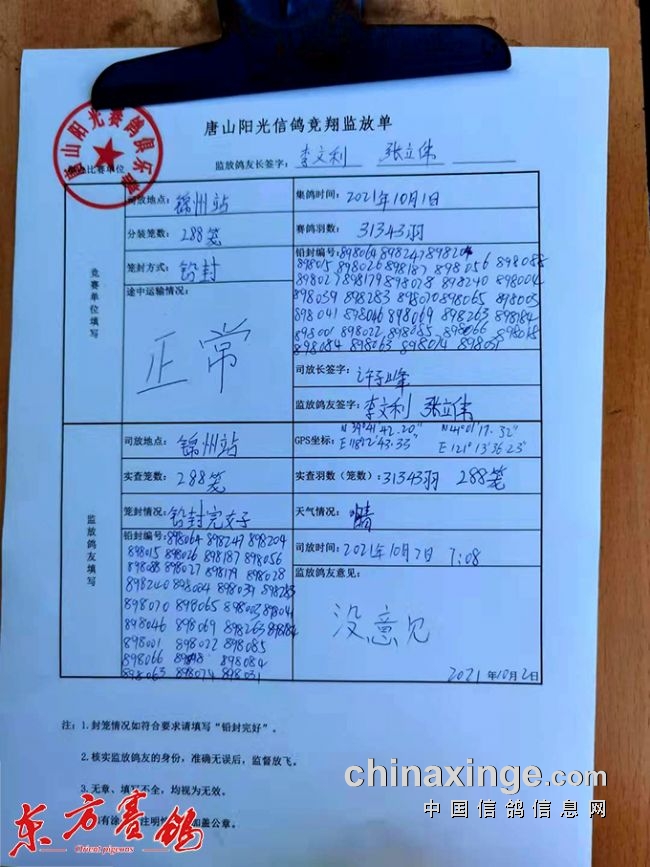 唐山阳光信鸽竞翔监放单
唐山阳光赛鸽俱乐部
比赛单位
监放鸽友长签字：李文利 张立伟
竞赛单位填写
司放地点：锦州站
集鸽时间：2021年10月1日
分装笼数：288笼
赛鸽羽数：31343羽
笼封方式：铅封
铅封编号：898064 898247 898204
898015 898026 898187 898056 898088
898027 898179 898028 898240 898004
898039 898283 898070 898065 898003
898041 898046 898069 898263 898184
898001 898022 898085 898066 898018
898084 898063 898074 898031
途中运输情况：
正常
司放长签字：许峰
监放鸽友签字：李文利 张立伟
监放鸽友填写
司放地点：锦州站
GPS坐标：N 39°41′42.20″ N 41°01′17.32″
E 118°12′43.33″ E 121°13′36.23″
实查笼数：288笼
实查羽数（笼数）：31343羽 288笼
笼封情况：铅封完好
天气情况：晴
铅封编号：898064 898247 898204
898015 898026 898187 898056
898088 898027 898179 898028
898240 898004 898039 898283
898070 898065 898003 898041
898046 898069 898263 898184
898001 898022 898085
898066 898084
898063 898074 898031
司放时间：2021年10月2日 7:08
监放鸽友意见：
没意见
2021年10月2日
注：1.封笼情况如符合要求请填写“铅封完好”。
2.核实监放鸽友的身份，准确无误后，监督放飞。
3.无章、填写不全，均视为无效。
有涂 注明 加盖公章。
东方赛鸽
chinaxinge.com
中国信鸽信息网